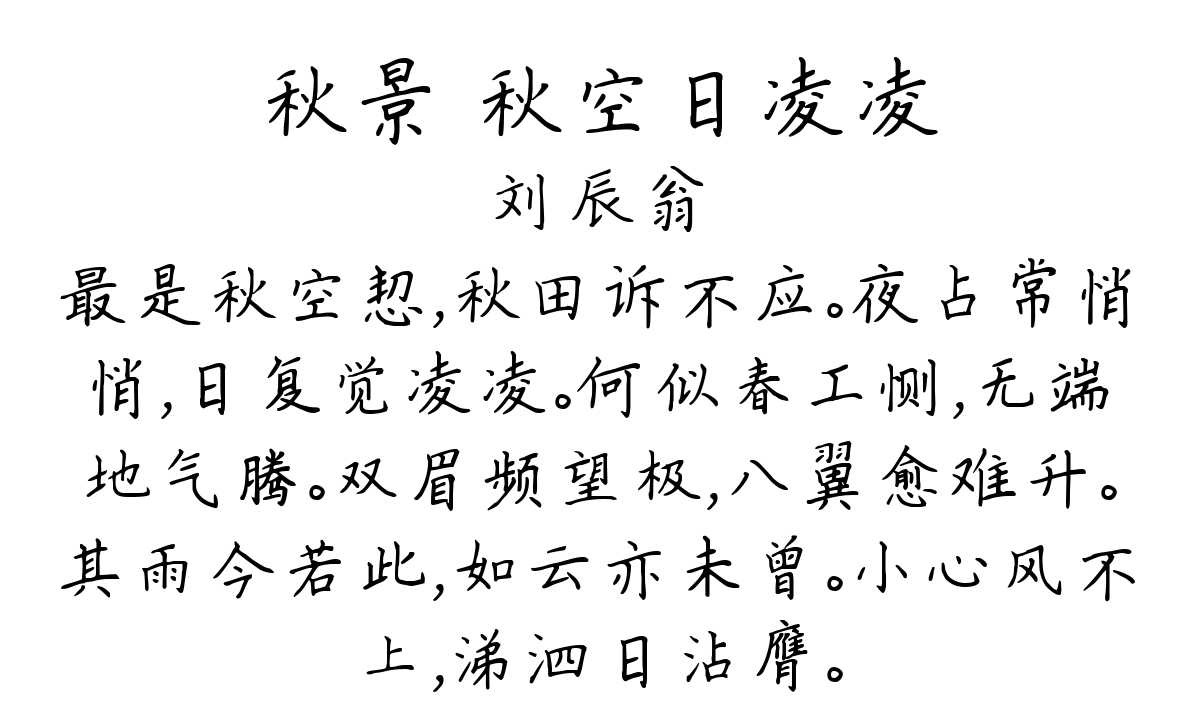 秋景 秋空日凌凌
刘辰翁
最是秋空恝,秋田诉不应。夜占常悄
悄,日复觉凌凌。何似春工恻,无端
地气腾。双眉频望极,八翼愈难升。
其雨今若此,如云亦未曾。小心风不
上,涕泗日沾膺。